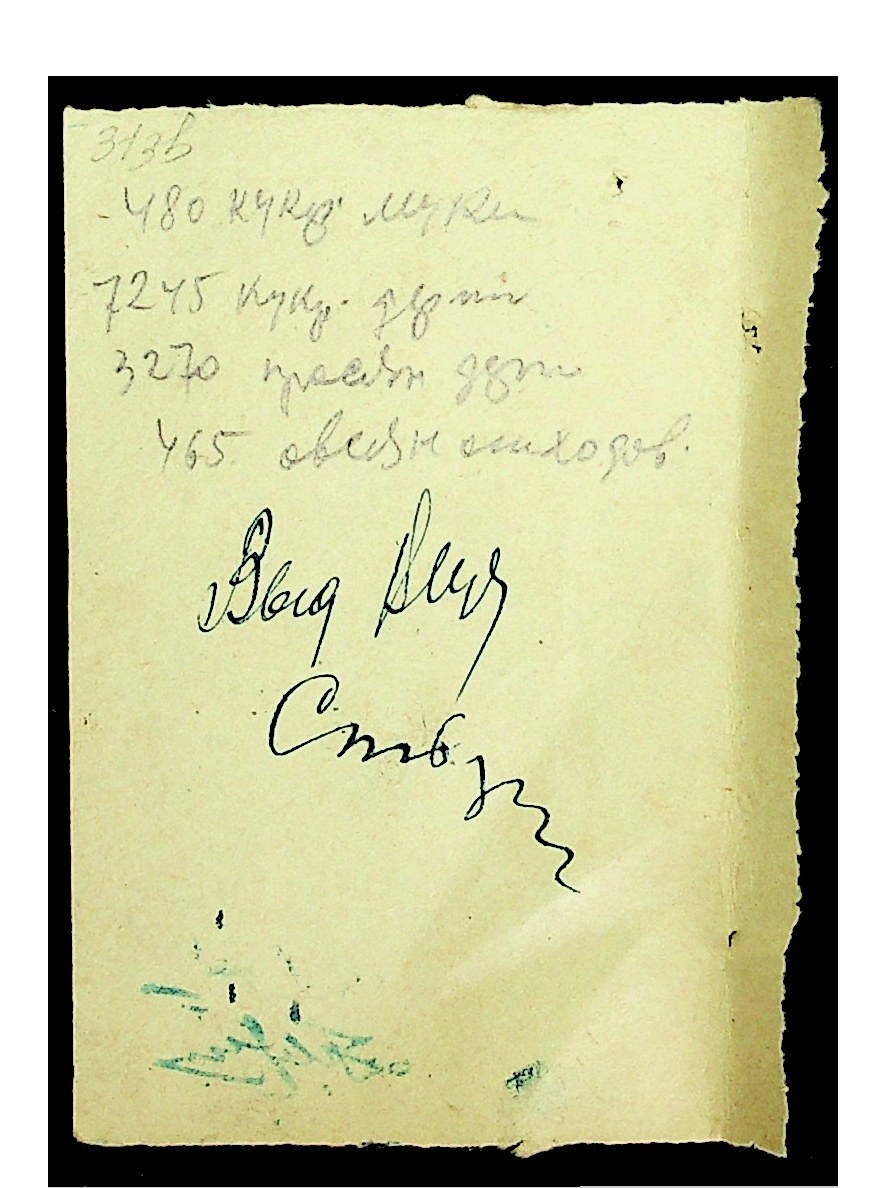 313в
480 кукур муки
7245 кукур. дерти
3270 просян дерти
465 овсян отходов.
Выд